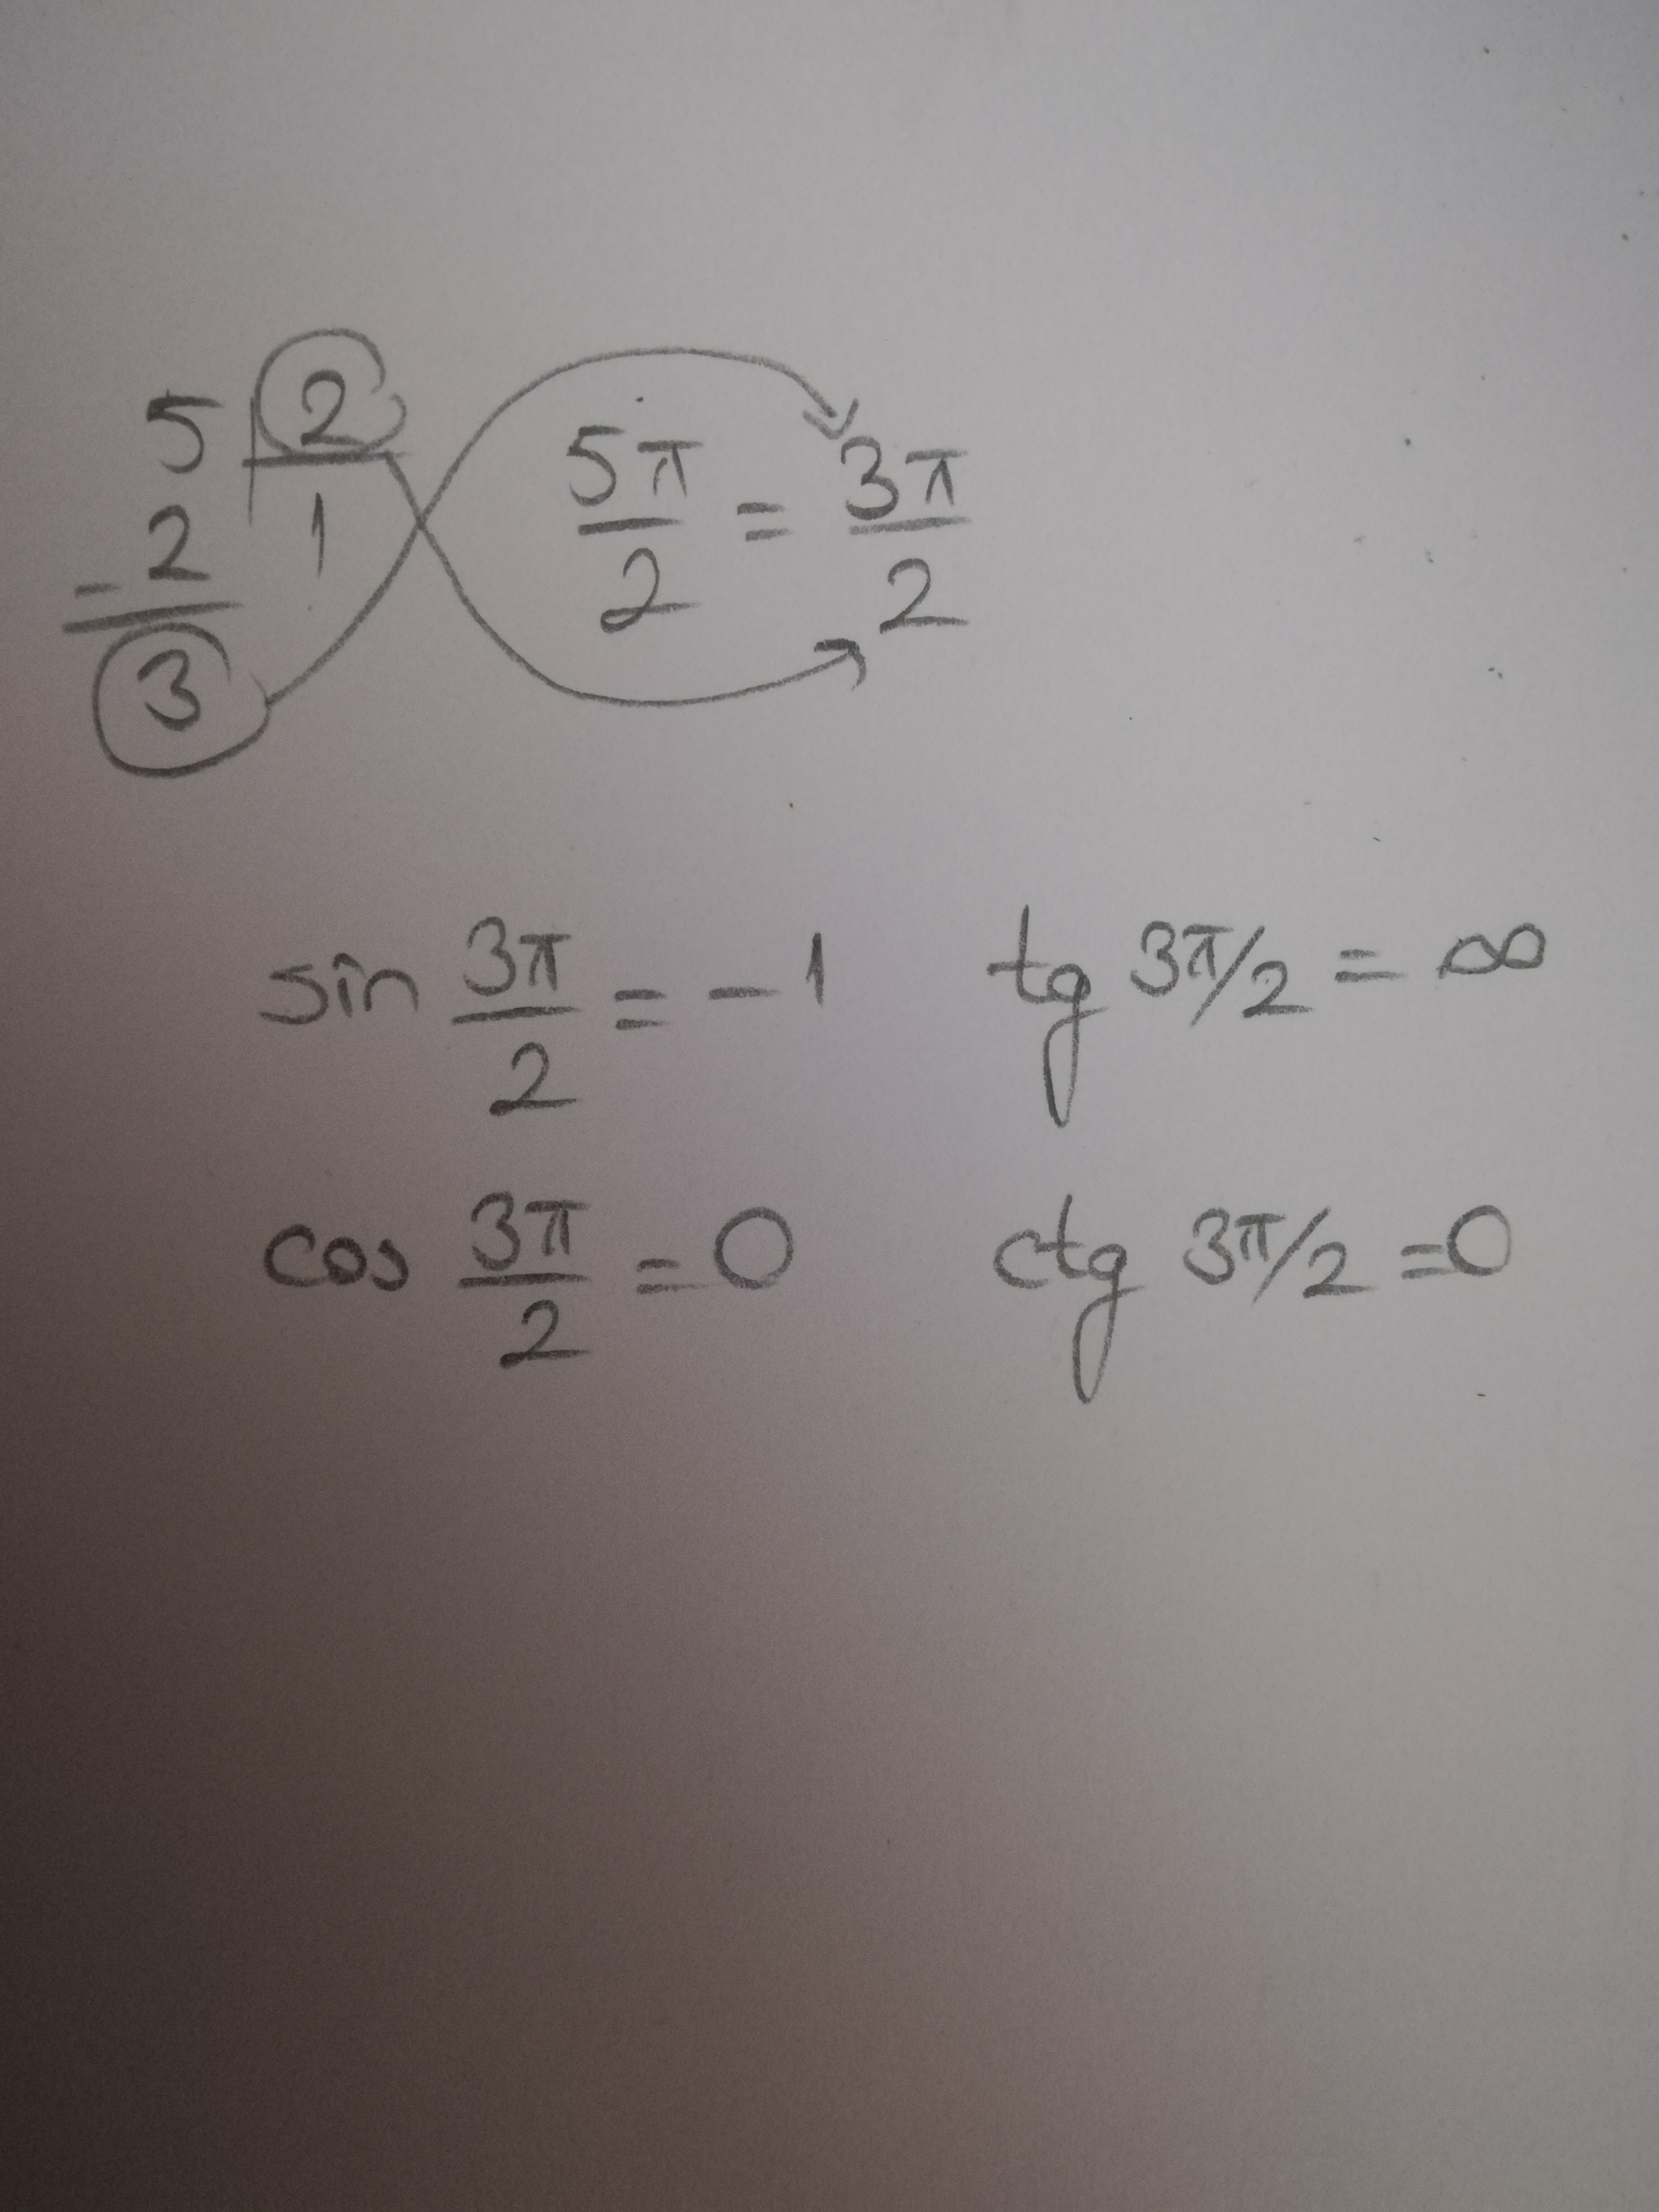 5 2
- 2 1
3
5π/2 = 3π/2
sin 3π/2 = -1 tg 3π/2 = ∞
cos 3π/2 = 0 ctg 3π/2 = 0